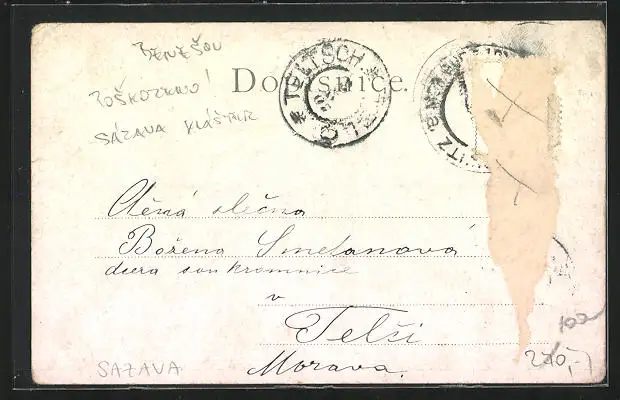 BENEŠOV
POŠKOZENO!
SÁZAVA KLÁŠTER
Dopisnice.
TELTSCH
TELČ
Ctěná slečna
Božena Smetanová
dcera soukromnice
v
Telči
Morava.
SAZAVA
100
270,-